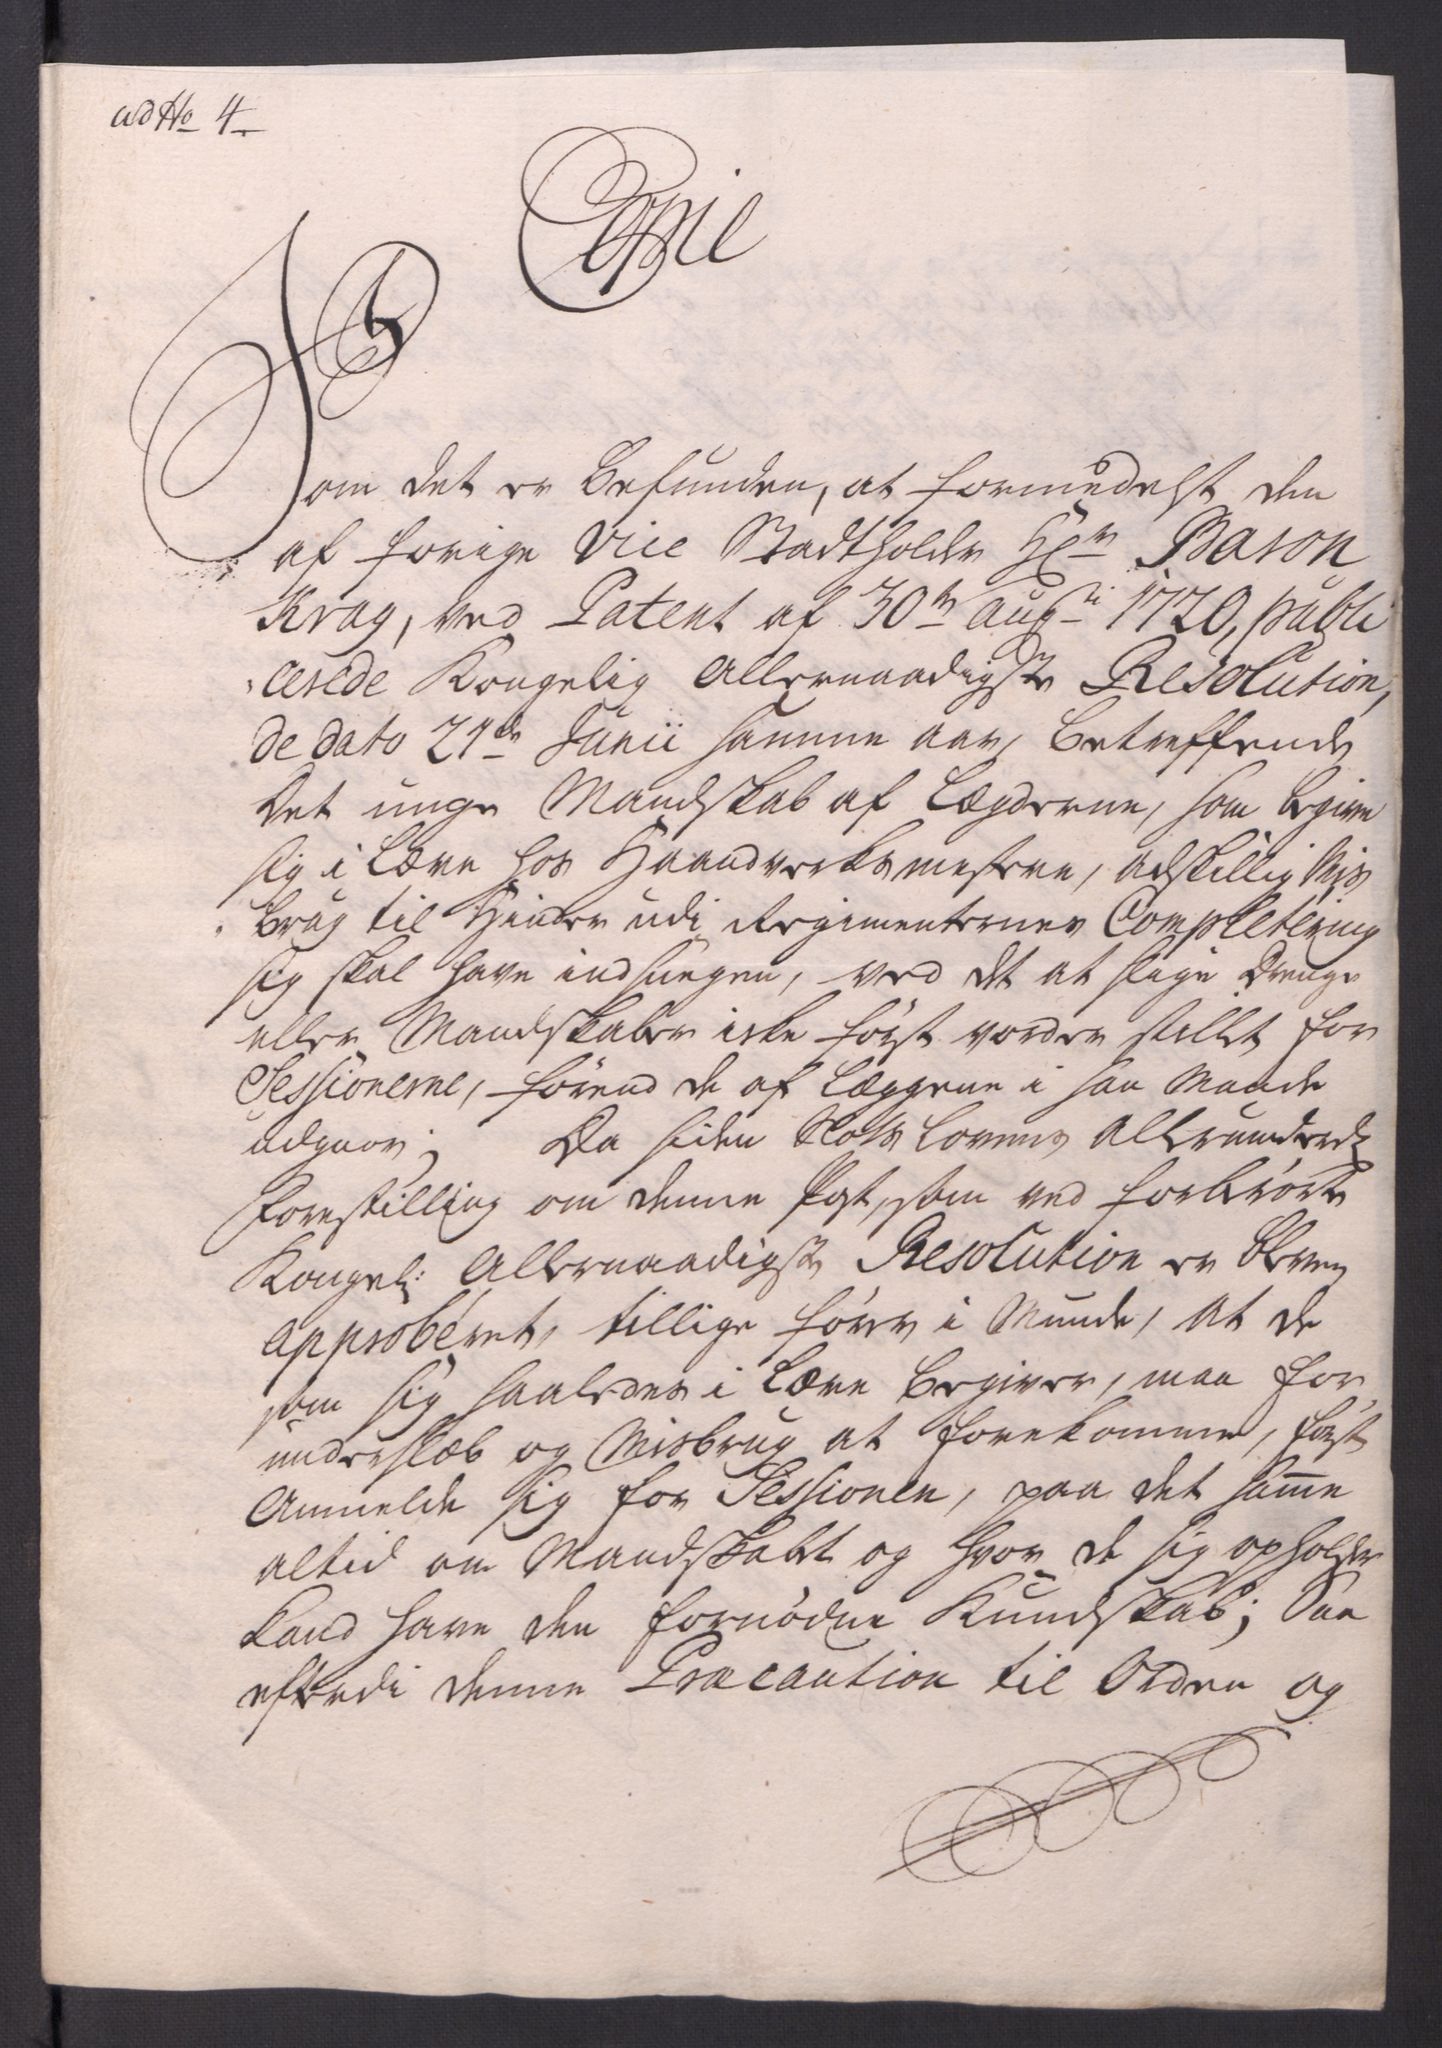 ad No 4
Copie
Som det er befunden, at formedelst den
af forige Vice Stadtholder Hr Baron
Krag, ved Patent af 30te augti 1720, publi
cerede Kongelig Allernaadigste Resolution,
de dato 21de Junii samme aar, betreffende
Det unge Mandskab af Lægderne, som begive
sig i Lære hos Haandverksmestere, adskillig Mis
brug til Hinder udi Regimenternes Completering
sig skal have indsneegen, ved det at slige Drenge
eller Mandskaber icke først vorder stillet for
Sessionerne, førend de af Læggene i saa Maade
udgaar; Da siden Slots Lovens Allerunderd:
Forestilling om denne Post, som ved forberørte
Kongel: Allernaadigste Resolution er bleven
approberet, tillige fører i Munde, at de
som sig saaledes i Lære begiver, maa for
underslæb og Misbrug at forekomme, først
Anmelde sig for Sessionen, paa det samme
altid om Mandskabet og hvor de sig opholder
kand have den fornødne Kundskab; Saa
efterdi denne Præcaution til Orden og